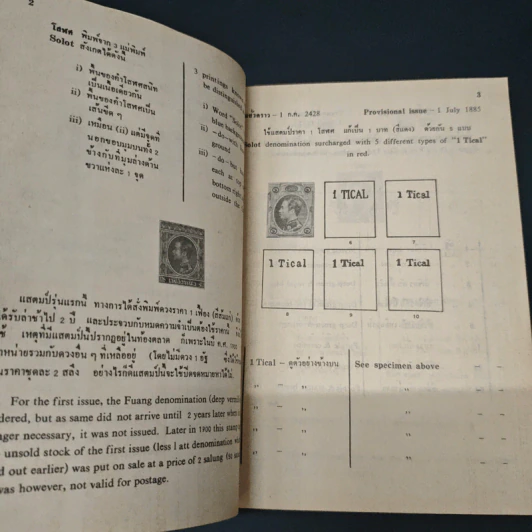 2
โสฬศ พิมพ์จาก 3 แม่พิมพ์
Solot สังเกตได้ดังนี้
i) พื้นของคำโสฬศสนิท
เป็นเนื้อเดียวกัน
ii) พื้นของคำโสฬศเป็น
เส้นขีด ๆ
iii) เหมือน (ii) แต่มีจุดที่
นอกขอบมุมบนทั้ง 2
ข้างกับที่มุมล่างด้าน
ขวาแห่งละ 1 จุด
3 printings
be distinguish
i) Word
blue back
ii) -do-
ground
iii) -do-
each
bottom right
outside the
แสตมป์รุ่นแรกนี้ ทางการได้สั่งพิมพ์ดวงราคา 1 เฟื้อง
ได้รับล่าช้าไป 2 ปี และประจวบกับหมดความจำเป็นต้องใช้ราคานี้
เหตุที่มีแสตมป์นี้ปรากฏอยู่ในท้องตลาด ก็เพราะในปี ค.ศ.
หน่ายรวมกับดวงอื่น ๆ ที่เหลืออยู่ (โดยไม่มีดวง 1 อัฐ
ราคาชุดละ 2 สลึง อย่างไรก็ดีแสตมป์นี้จะใช้ปิดจดหมายหาได้ไม่
For the first issue, the Fuang denomination (deep
dered, but as same did not arrive until 2 years later when
ger necessary, it was not issued. Later in 1900 this
unsold stock of the first issue (less 1 att denomination
d out earlier) was put on sale at a price of 2 salung (to
was however, not valid for postage.
3
ชั่วคราว – 1 ก.ค. 2428 Provisional issue – 1 July 1885
ใช้แสตมป์ราคา 1 โสฬศ แก้เป็น 1 บาท (สีแดง) ด้วยกัน 5 แบบ
Solot denomination surcharged with 5 different types of "1 Tical"
in red.
1 TICAL
1 Tical
6
7
1 Tical
1 Tical
1 Tical
8
9
10
1 Tical – ดูตัวอย่างข้างบน See specimen above – –